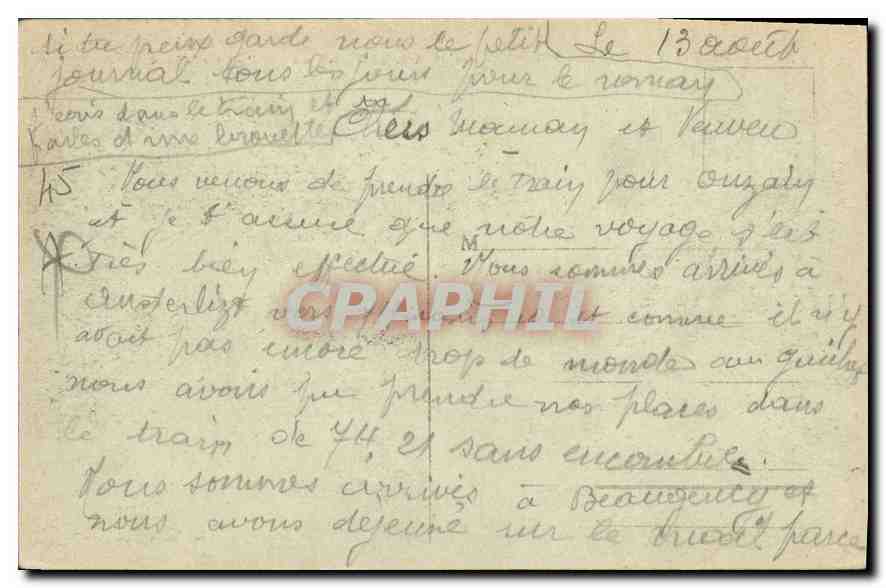 si tu peux garde nous le petit Le 13 août
journal tous les jours pour le roman
J'écris dans le train et
parles d'une brouette Chers Maman et
45 Nous venons de prendre le train pour Onzain
et je t'assure que notre voyage s'est
Très bien effectué. M Nous sommes arrivés à
Austerlitz vers et comme il n'y
avait pas encore trop de monde au guichet
nous avons pu prendre nos places dans
le train de 7H,21 sans encombre.
Nous sommes arrivés à Beaugency et
nous avons déjeuné sur le parce
CPAPHIL